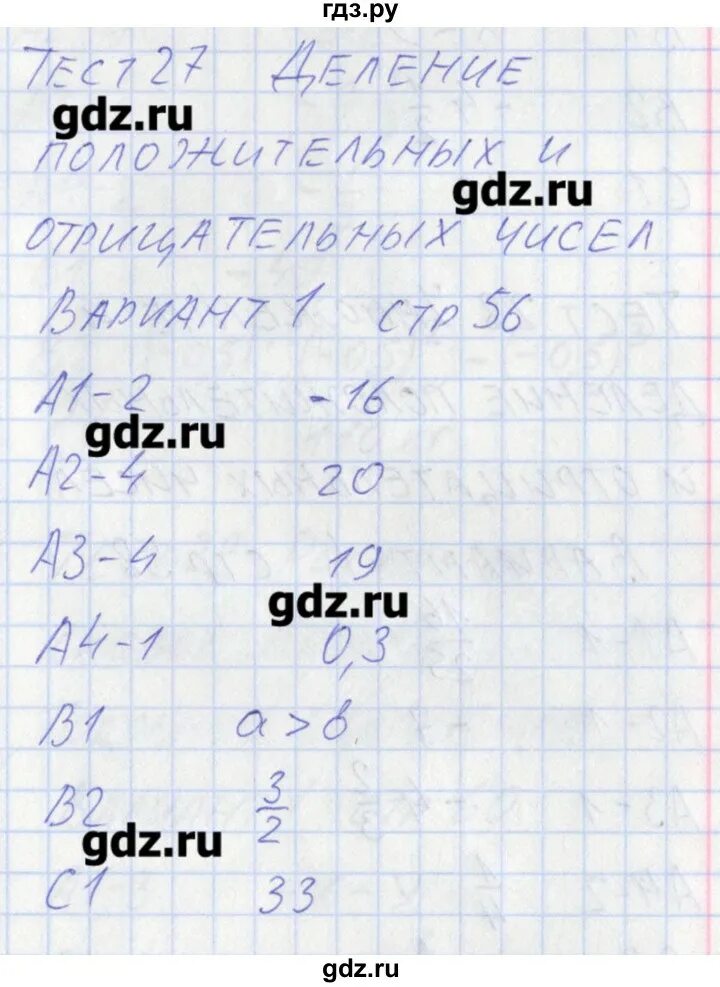 гдз.ру
Тест 27 Деление
gdz.ru
положительных и
gdz.ru
отрицательных чисел
Вариант 1 стр 56
А1-2 -16
gdz.ru
А2-4 20
А3-4 19
gdz.ru
А4-1 0,3
В1 a > b
В2 3/2
gdz.ru
С1 33
gdz.ru